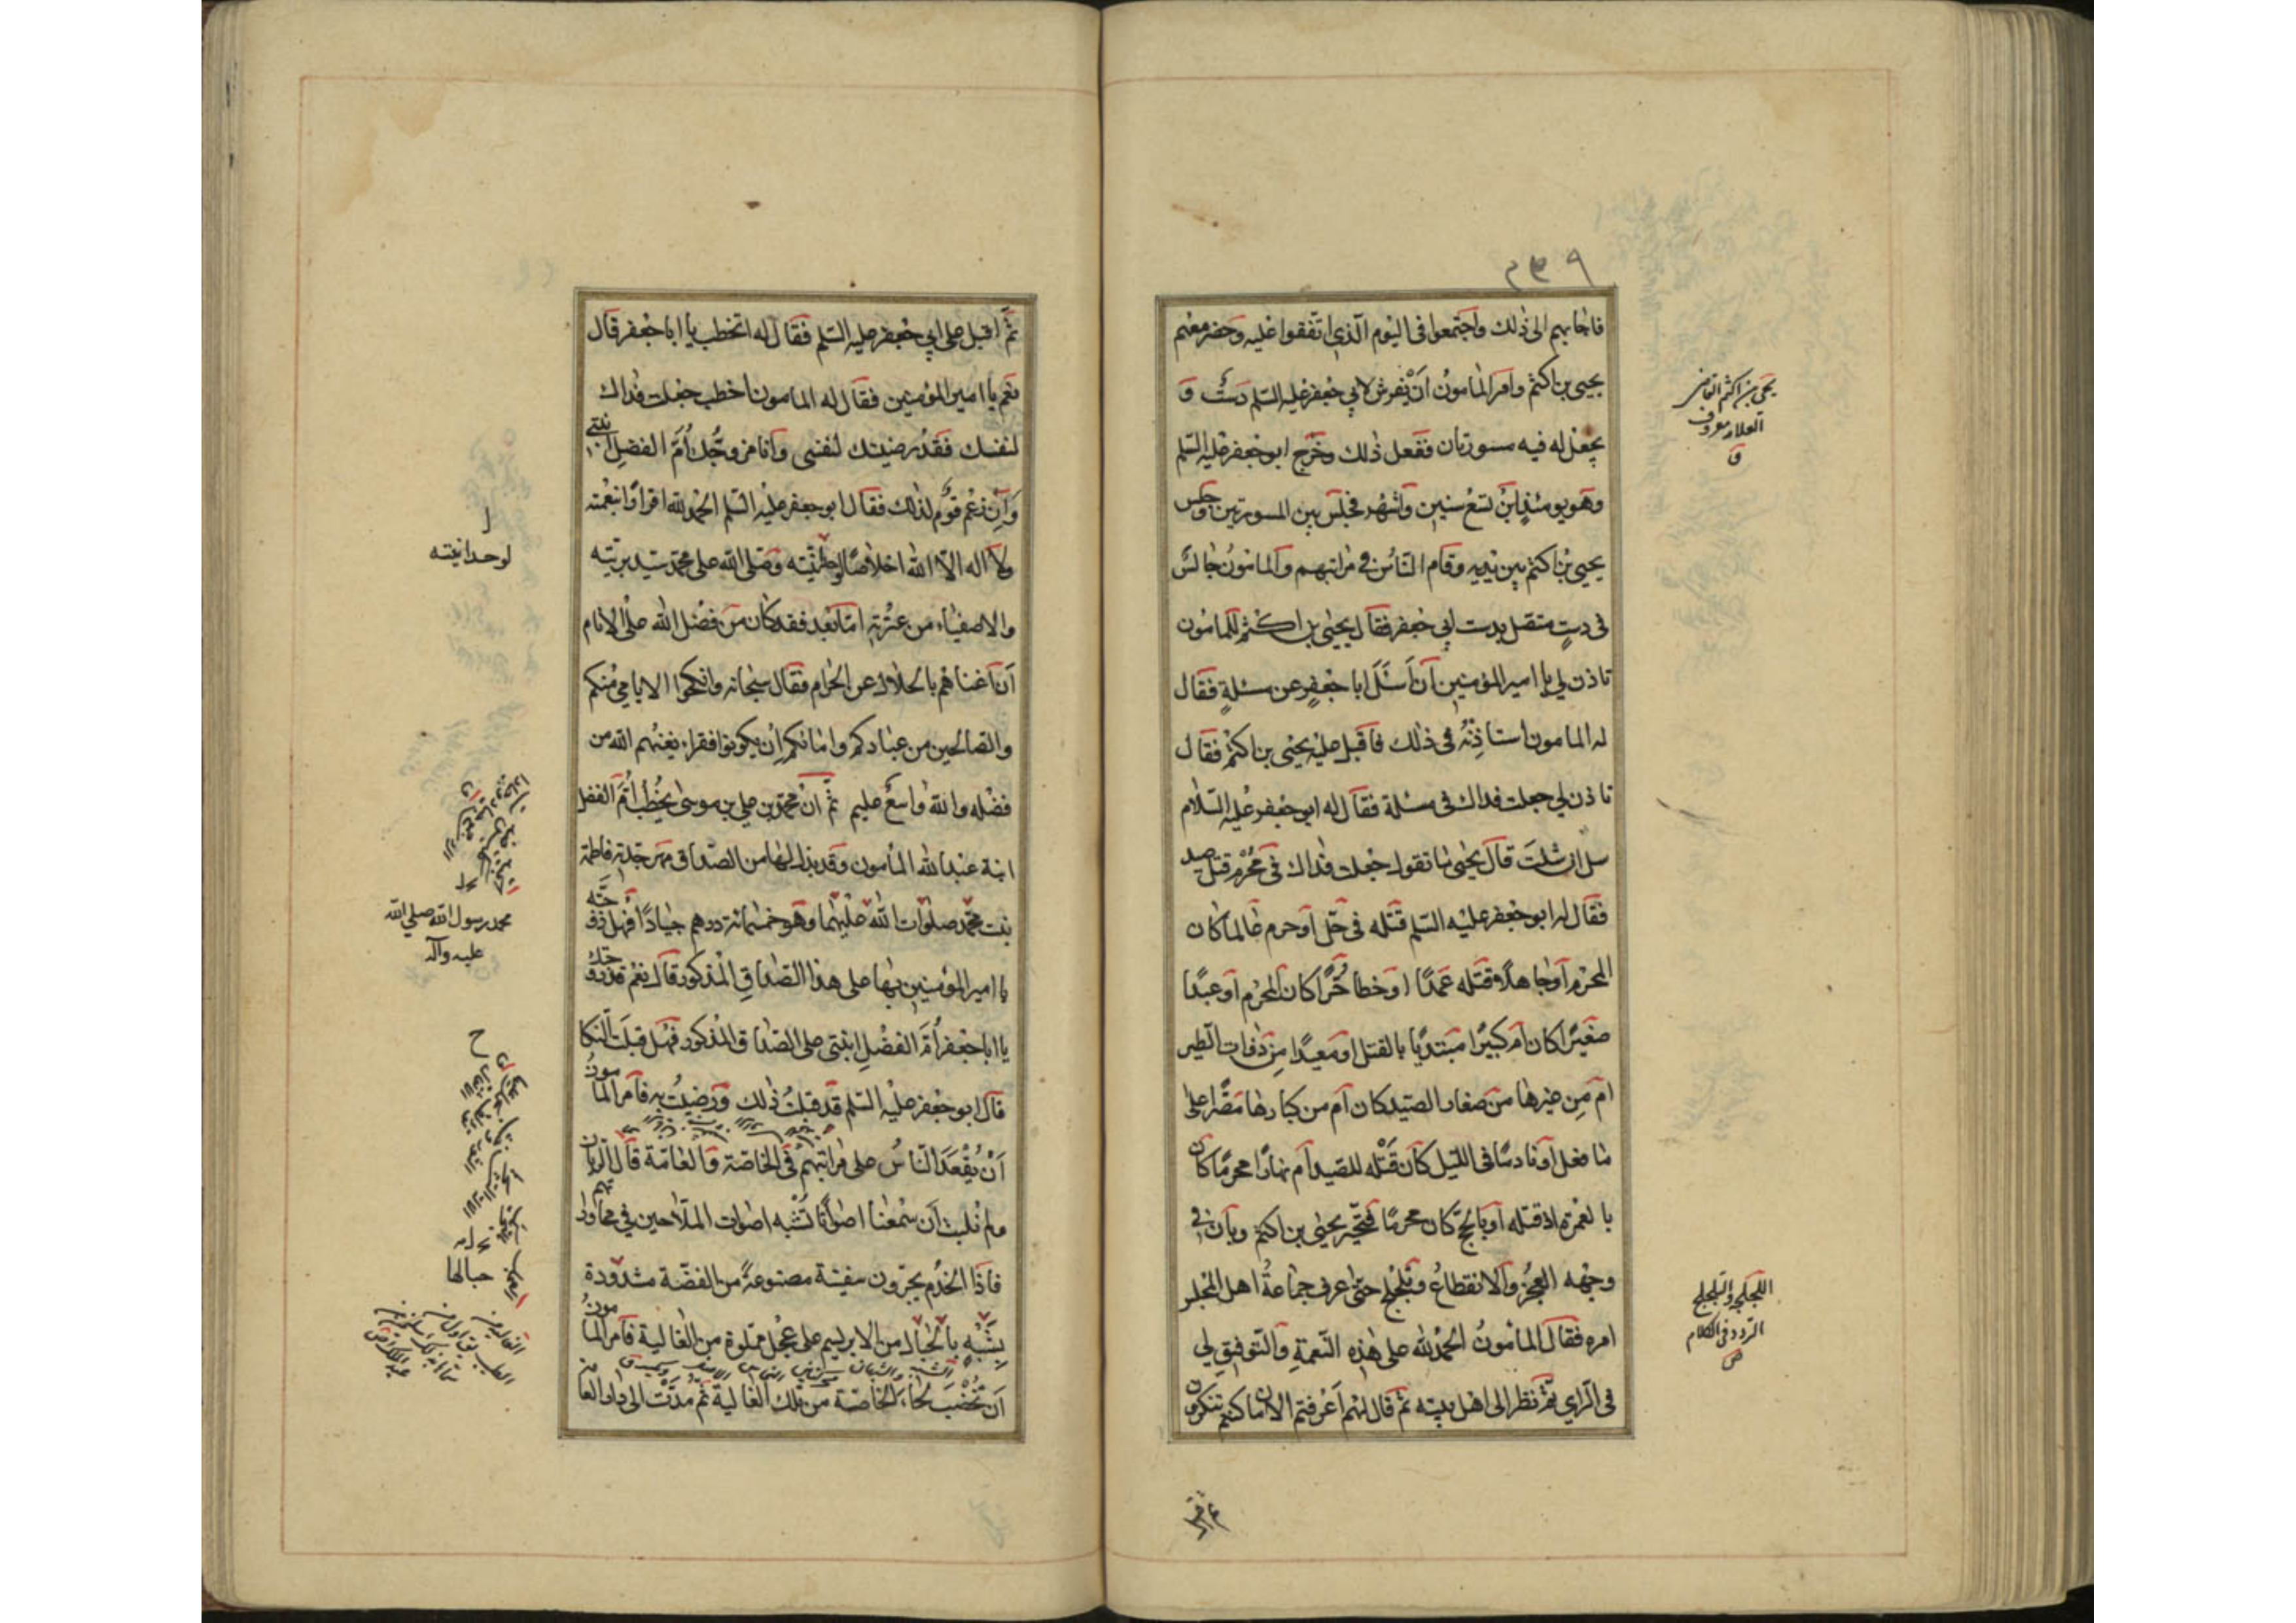 ٢٣٩
فاجابهم الى ذلك واجتمعوا فى اليوم الذى اتفقوا عليه وحضر معهم
يحيى بن اكثم وامر المامون ان يفرش لابي جعفر عليه السلم دست و
يجعل له فيه مسورتان ففعل ذلك وخرج ابو جعفر عليه السلم
وهو يومئذ ابن تسع سنين واشهر فجلس بين المسورتين وجلس
يحيى بن اكثم بين يديه وقام الناس فى مراتبهم والمامون جالس
فى دست متصل بدست ابي جعفر فقال يحيى بن اكثم للمامون
تاذن لي يا امير المؤمنين ان اسئل ابا جعفر عن مسئلة فقال
له المامون استاذنه فى ذلك فاقبل عليه يحيى بن اكثم فقال
تاذن لي جعلت فداك فى مسئلة فقال له ابو جعفر عليه السلام
سل ان شئت قال يحيى ما تقول جعلت فداك فى محرم قتل صيد
فقال له ابو جعفر عليه السلم قتله فى حل او حرم عالما كان
المحرم او جاهلا قتله عمدا او خطا حرا كان المحرم او عبدا
صغيرا كان ام كبيرا مبتديا بالقتل او معيدا من ذوات الطير
ام من غيرها من صغار الصيد كان ام من كبارها مصرا على
ما فعل او نادما فى الليل كان قتله للصيد ام نهارا محرما كان
بالعمرة اذ قتله او بالحج كان محرما فتحير يحيى بن اكثم وبان فى
وجهه العجز والانقطاع وتلجلج حتى عرف جماعة اهل المجلس
امره فقال المامون الحمد لله على هذه النعمة والتوفيق لي
فى الراي ثم نظر الى اهل بيته ثم قال لهم اعرفتم الان ما كنتم تنكرون
يحيى بن اكثم القاضى
العلامة معروف
ق
اللجلجة والتلجلج
التردد فى الكلام
ص
ثم اقبل على ابي جعفر عليه السلم فقال له اتخطب يا ابا جعفر قال
نعم يا امير المؤمنين فقال له المامون اخطب جعلت فداك
لنفسك فقد رضيتك لنفسى وانا مزوجك ام الفضل ابنتي
وان رغم قوم لذلك فقال ابو جعفر عليه السلم الحمد لله اقرارا بنعمته
ولا اله الا الله اخلاصا لوحدانيته وصلى الله على محمد سيد بريته
والاصفياء من عترته اما بعد فقد كان من فضل الله على الانام
ان اغناهم بالحلال عن الحرام فقال سبحانه وانكحوا الايامي منكم
والصالحين من عبادكم وامائكم ان يكونوا فقراء يغنهم الله من
فضله والله واسع عليم ثم ان محمد بن علي بن موسى يخطب ام الفضل
ابنة عبد الله المأمون وقد بذل لها من الصداق مهر جدته فاطمة
بنت محمد صلوات الله عليهما وهو خمسمائة درهم جيادا فهل زوجته
يا امير المؤمنين بها على هذا الصداق المذكور قال نعم قد زوجتك
يا ابا جعفر ام الفضل ابنتى على الصداق المذكور فهل قبلت النكا
قال ابو جعفر عليه السلم قد قبلت ذلك ورضيت به فامر المامون
ان يقعد الناس على مراتبهم فى الخاصة والعامة قال الريان
ولم نلبث ان سمعنا اصواتا تشبه اصوات الملاحين في محاوراتهم
فاذا الخدم يجرون سفينة مصنوعة من الفضة مشدودة
بشبه بالحبال من الابريسم على عجل مملوة من الغالية فامر المامون
ان تخضب لحاء الخاصة من تلك الغالية ثم مدت الى دار العا
لوحدانيته
محمد رسول الله صلى الله
عليه وآله
حبالها